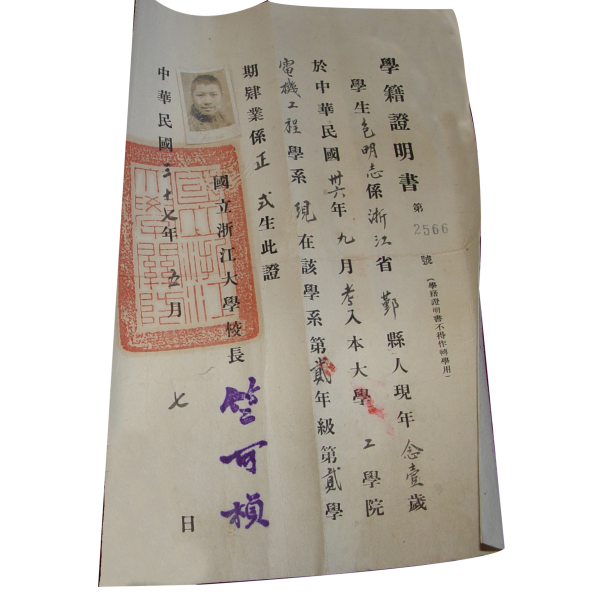 學籍證明書 第2566號 (學籍證明書不得作轉學用)
學生包明志係浙江省鄞縣人現年念壹歲
於中華民國卅六年九月考入本大學工學院
電機工程學系現在該學系第貳年級第貳學
期肄業係正式生此證
國立浙江大學校長 竺可楨
中華民國三十七年五月七日